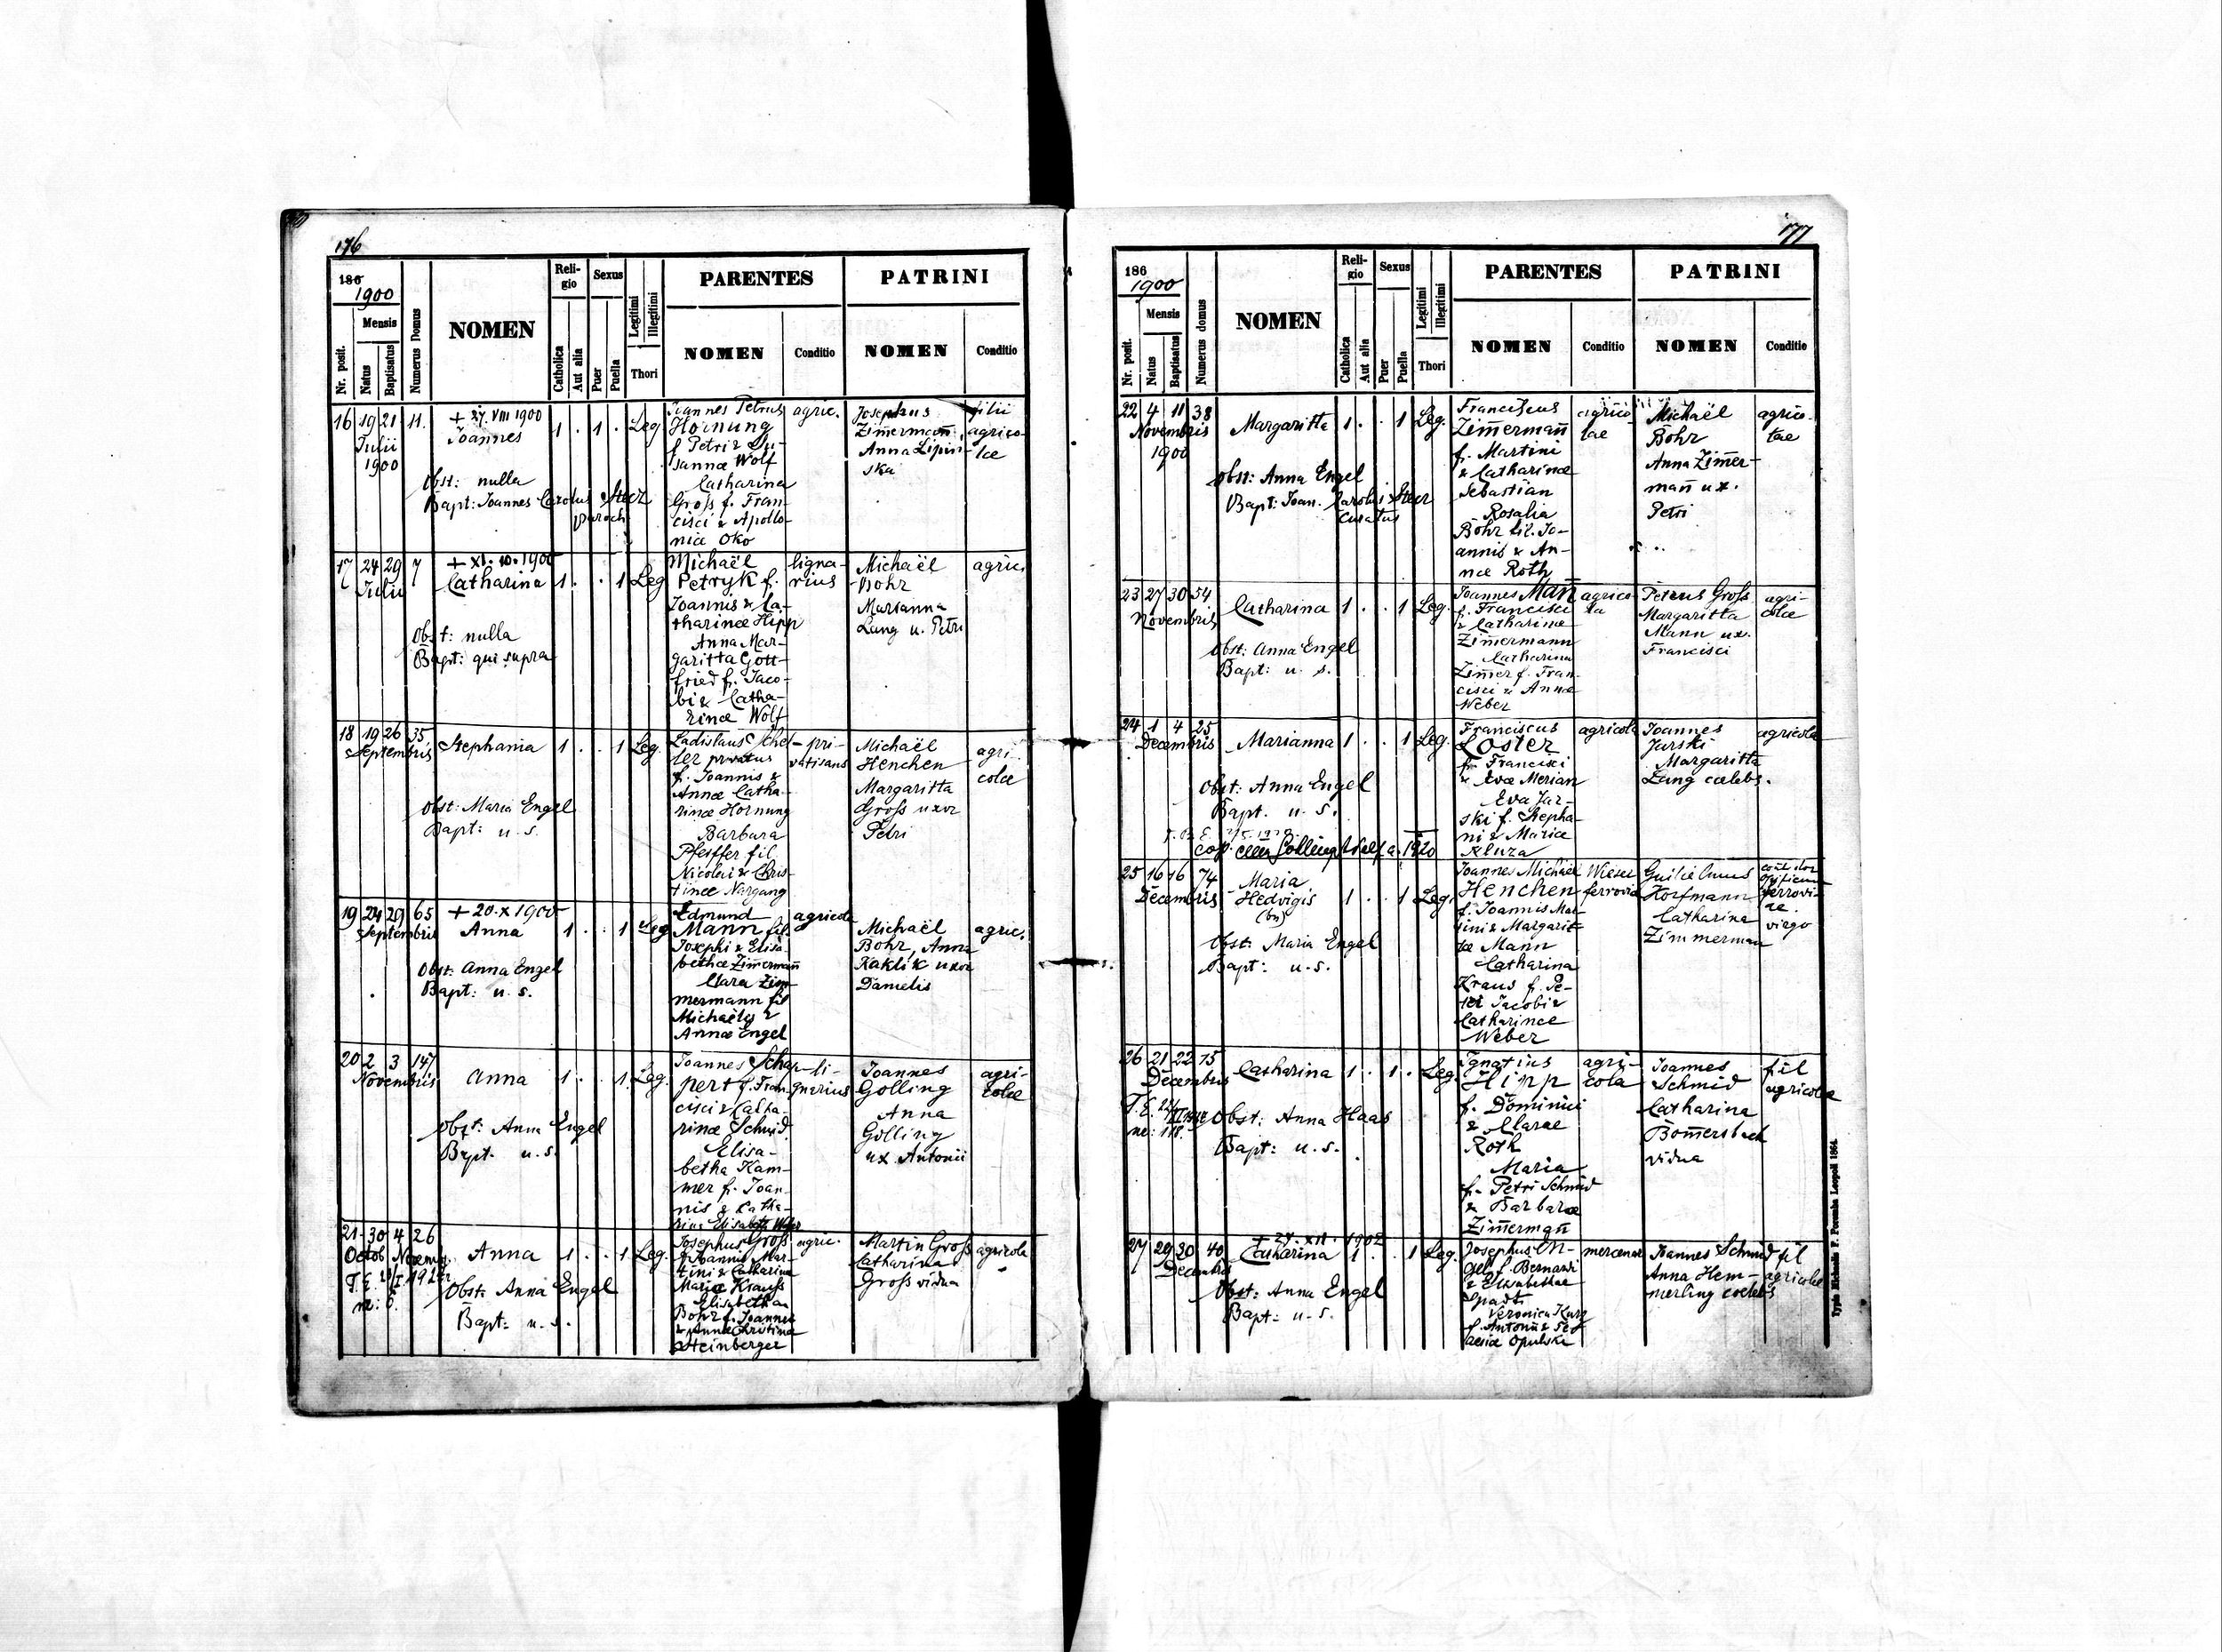 176
186
1900
Nr. posit.
Mensis
Natus
Baptisatus
Numerus Domus
NOMEN
Religio
Catholica
Aut alia
Sexus
Puer
Puella
Legitimi
Illegitimi
Thori
PARENTES
NOMEN
Conditio
PATRINI
NOMEN
Conditio
16 19 21 11.
Julii
1900
+ 27. VIII 1900
Joannes
Obst: nulla
Bapt: Joannes Carolus Steer
paroch
1 . . 1 . Leg
Joannes Petrus
Hornung
f. Petri & Su-
sannæ Wolf
Catharina
Gross f. Fran-
cisci & Apollo-
niæ Oko
agric.
Josephus
Zimermann,
Anna Lipin-
ska
filii
agrico-
læ
17 24 29 7
Julii
+ XI. 10. 1900
Catharina
Obst: nulla
Bapt: qui supra
1 . . 1 Leg
Michaël
Petryk f.
Joannis & Ca-
tharinæ Hipp
Anna Mar-
garitta Gott-
fried f. Jaco-
bi & Catha-
rinæ Wolf
ligna-
rius
Michaël
Bohr
Marianna
Lang u. Petri
agric.
18 19 26 35
Septembris
Stephania
Obst: Maria Engel
Bapt: u. s.
1 . . 1 Leg.
Ladislaus Schel-
ler privatus
f. Joannis &
Annæ Catha-
rinæ Hornung
Barbara
Pfeiffer fil
Nicolai & Chris-
tinæ Nargang
pri-
vatisans
Michaël
Henchen
Margaritta
Gross uxor
Petri
agri-
colæ
19 24 29 65
Septembris
+ 20. X 1900
Anna
Obst: Anna Engel
Bapt: u. s.
1 . . 1 Leg
Edmund
Mann fil.
Josephi & Elisa-
bethæ Zimermann
Clara Zim-
mermann fil
Michaëlis &
Annæ Engel
agricola
Michaël
Bohr, Anna
Raklik uxor
Danielis
agric.
20 2 3 147
Novembris
Anna
Obst: Anna Engel
Bapt. u. s.
1 . . 1. Leg.
Joannes Schap-
pert f. Fran-
cisci & Catha-
rinæ Schmid.
Elisa-
betha Kam-
mer f. Joan-
nis & Catha-
rinæ Elisabeth
li-
gnarius
Joannes
Golling
Anna
Golling
ux Antonii
agri-
colæ
21. 30 4 26
Octob Novemb.
Anna
Obst: Anna Engel
Bapt: u. s.
1 . . 1 Leg.
Josephus Gross
f. Joannis Mar-
tini & Catharinæ
Mariæ Krauss
Elisabetha
Bohr f. Joannis
& Annæ Christinæ
Steinberger
agric.
Martin Gross
Catharina
Gross vidua
agricola
177
186
1900
Nr. posit.
Mensis
Natus
Baptisatus
Numerus domus
NOMEN
Religio
Catholica
Aut alia
Sexus
Puer
Puella
Legitimi
Illegitimi
Thori
PARENTES
NOMEN
Conditio
PATRINI
NOMEN
Conditio
22 4 11 38
Novembris
1900
Margaritta
Obst: Anna Engel
Bapt: Joan. Carolus Steer
curatus
1 . . 1 Leg.
Franciscus
Zimermann
f. Martini
& Catharinæ
Sebastian
Rosalia
Bohr fil. Jo-
annis & An-
næ Roth
agrico-
læ
Michaël
Bohr
Anna Zimer-
mann ux.
Petri
agrico-
læ
23 27 30 54
Novembris
Catharina
Obst: Anna Engel
Bapt: u. s.
1 . . 1 Leg.
Joannes Mann
f. Francisci
& Catharinæ
Zimermann
Catharina
Zimer f. Fran-
cisci & Annæ
Weber
agrico-
la
Petrus Gross
Margaritta
Mann ux.
Francisci
agri-
colæ
24 1 4 25
Decembris
Marianna
Obst: Anna Engel
Bapt. u. s.
1 . . 1 Leg.
Franciscus
Loster
f. Francisci
& Evæ Merian
Eva Jar-
ski f. Stepha-
ni & Mariæ
Kluza
agricola
Joannes
Jarski
Margaritta
Lang cælebs.
agricola
25 16 16 74
Decembris
Maria
Hedvigis
(bn)
Obst: Maria Engel
Bapt: u. s.
1 . . 1 Leg.
Joannes Michaël
Henchen
f. Joannis Mar-
tini & Margarit-
tæ Mann
Catharina
Kraus f. Pe-
tri Jacobi &
Catharinæ
Weber
ferroviæ
Guilielmus
Horfmann
Catharina
Zimmerman
ferrovi-
æ.
virgo
26 21 22 75
Decembris
Catharina
Obst: Anna Haas
Bapt: u. s.
1 . 1 . Leg.
Ignatius
Hipp
f. Dominici
& Clarae
Roth
Maria
f. Petri Schmid
& Barbaræ
Zimermann
agri-
cola
Joannes
Schmid
Catharina
Bomersbach
vidua
fil
agricolæ
27 29 30 40
Decembris
+ 27. XII. 1902
Catharina
Obst: Anna Engel
Bapt: u. s.
1 . . 1 Leg.
Josephus En-
gel f. Bernardi
& Elisabethae
Spadt
Veronica Kurz
f. Antonii &
Opulska
mercenar
Joannes Schmid
Anna Hem-
merling coelebs
fil
agricolæ
Typis Michaelis F. Poremba Leopoli 1864.